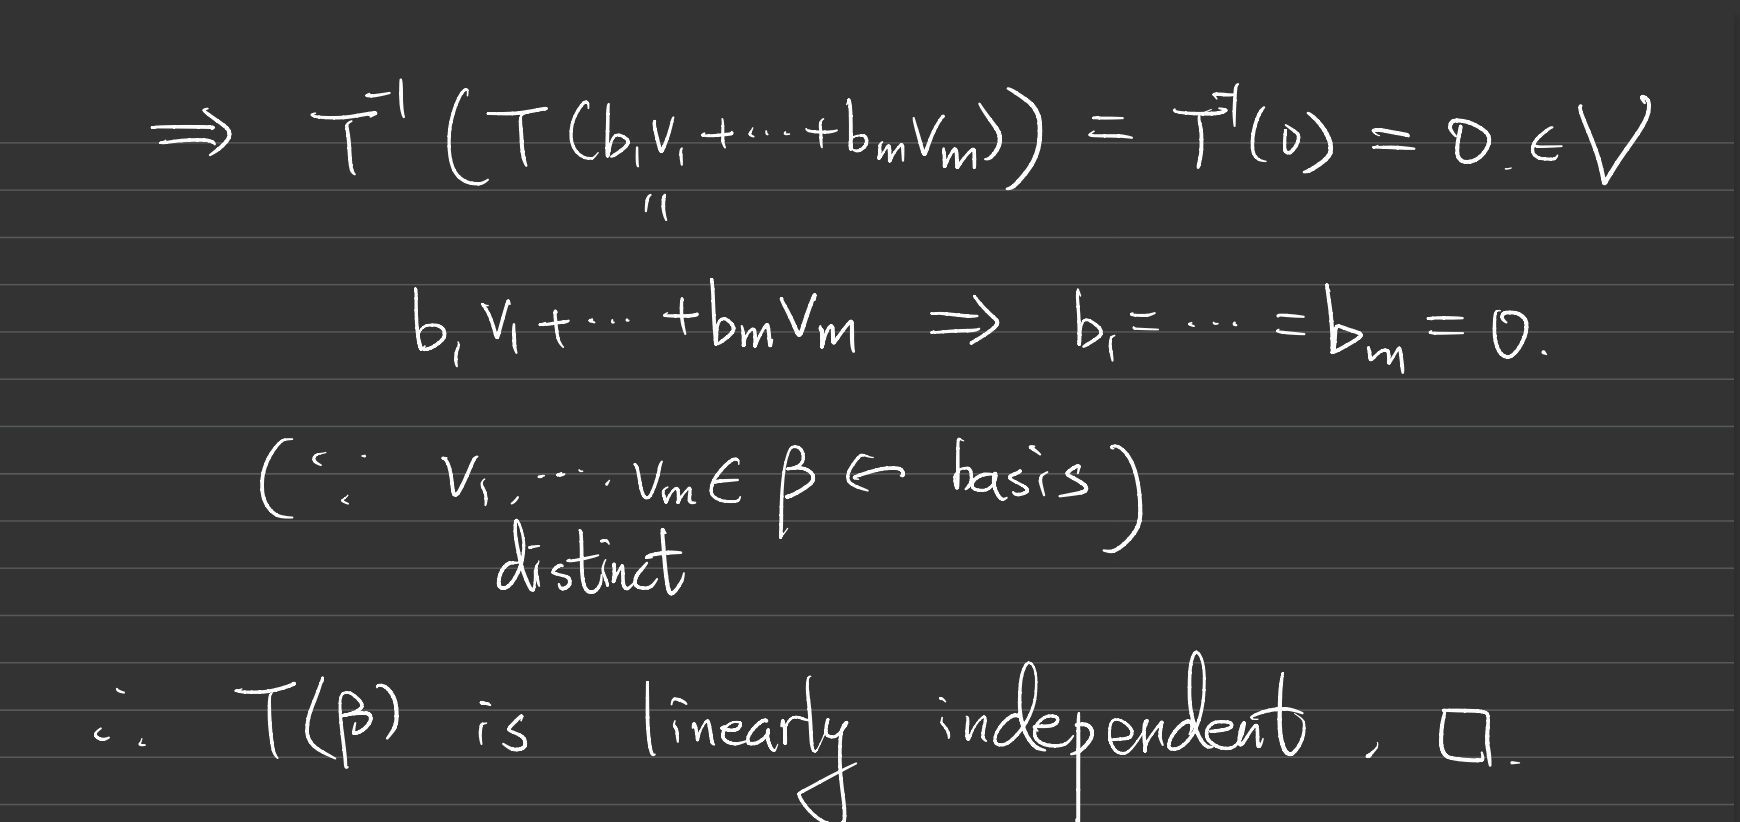 ⇒ T⁻¹(T(b₁v₁+⋯+bₘvₘ)) = T⁻¹(0) = 0. ∈ V
"
b₁v₁+⋯+bₘvₘ ⇒ b₁=⋯=bₘ=0.
(∵ v₁,⋯.vₘ∈β ← basis)
distinct
∴ T(β) is linearly independent, □.